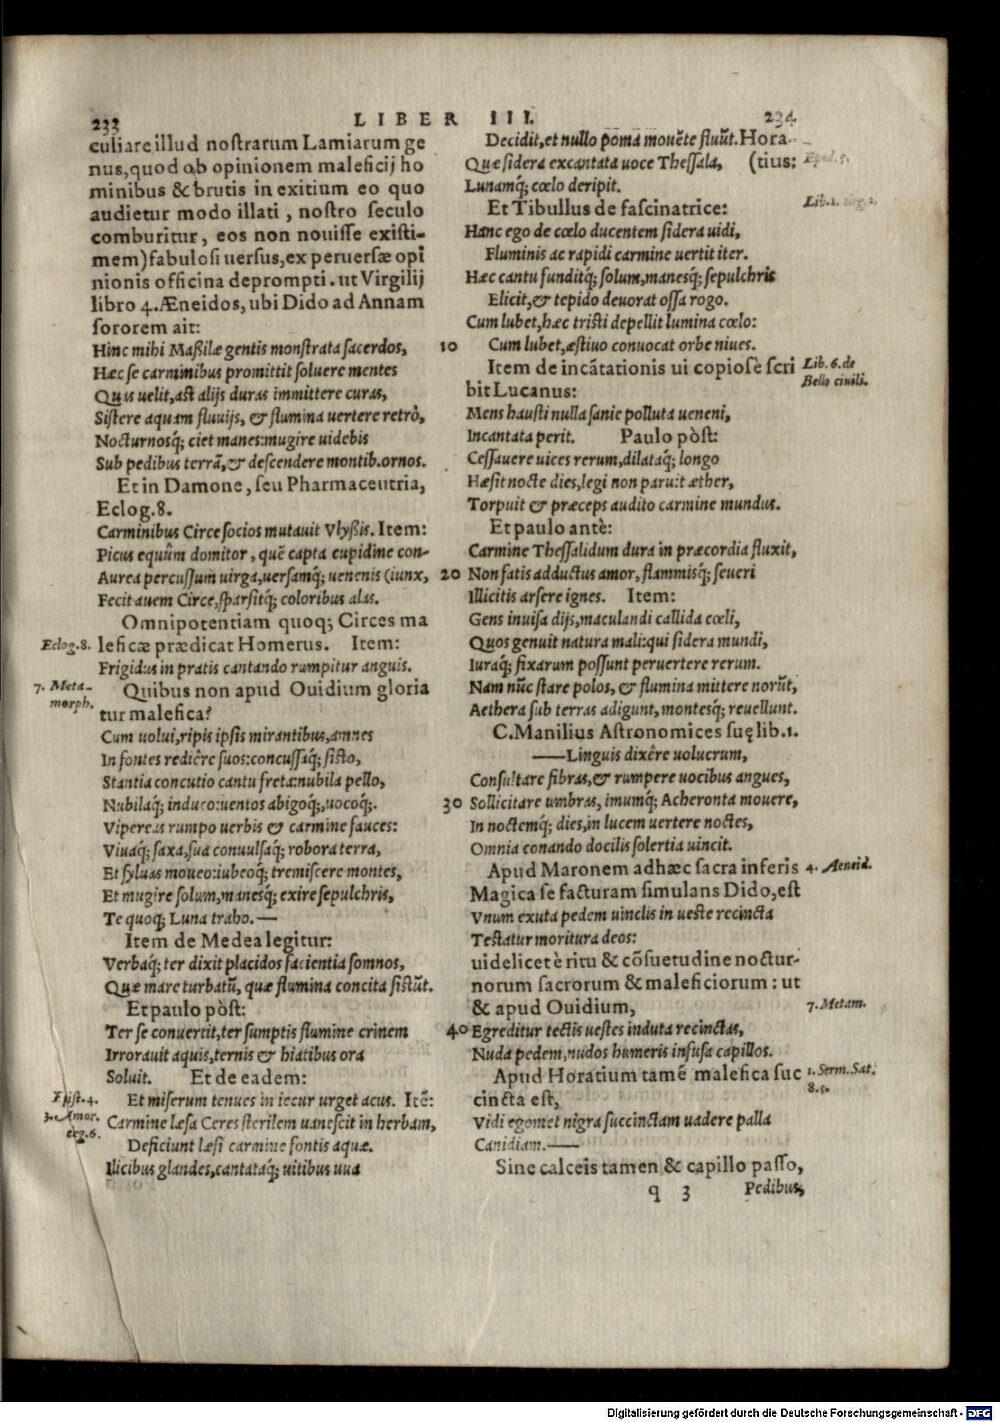 233 LIBER III. 234
culiare illud nostrarum Lamiarum ge
nus, quod ob opinionem maleficij ho
minibus & brutis in exitium eo quo
audietur modo illati, nostro seculo
comburitur, eos non nouisse existi-
mem) fabulosi uersus, ex peruersæ opi
nionis officina deprompti. ut Virgilij
libro 4. Æneidos, ubi Dido ad Annam
sororem ait:
Hinc mihi Maßilæ gentis monstrata sacerdos,
Hæc se carminibus promittit soluere mentes
Quis uelit, ast alijs duras immittere curas,
Sistere aquam fluuijs, & flumina uertere retrò,
Nocturnosq́; ciet manes: mugire uidebis
Sub pedibus terrã, & descendere montib. ornos.
Et in Damone, seu Pharmaceutria,
Eclog. 8.
Carminibus Circe socios mutauit Vlyßis. Item:
Picus equûm domitor, quẽ capta cupidine con-
Aurea percussum uirga, uersamq́; uenenis (iunx,
Fecit auem Circe, sparsitq́; coloribus alas.
Omnipotentiam quoq; Circes ma
Eclog. 8. leficæ prædicat Homerus. Item:
Frigidus in pratis cantando rumpitur anguis.
7. Meta-
morph.
Quibus non apud Ouidium gloria
tur malefica?
Cum uolui, ripis ipsis mirantibus, amnes
In fontes rediêre suos: concussaq́; sisto,
Stantia concutio cantu freta: nubila pello,
Nubilaq́; induco: uentos abigoq́;, uocoq́;.
Vipereas rumpo uerbis & carmine fauces:
Viuaq́; saxa, sua conuulsaq́; robora terra,
Et syluas moueo: iubeoq́; tremiscere montes,
Et mugire solum, manesq́; exire sepulchris,
Te quoq; Luna traho. —
Item de Medea legitur:
Verbaq́; ter dixit placidos facientia somnos,
Quæ mare turbatũ, quæ flumina concita sistũt.
Et paulo pòst:
Ter se conuertit, ter sumptis flumine crinem
Irrorauit aquis, ternis & hiatibus ora
Soluit. Et de eadem:
Epist. 4. Et miserum tenues in iecur urget acus. Itẽ:
3. Amor.
eleg. 6.
Carmine læsa Ceres sterilem uanescit in herbam,
Deficiunt læsi carmine fontis aquæ.
Ilicibus glandes, cantataq́; uitibus uua
Decidit, et nullo poma mouẽte fluũt. Hora-
Quæ sidera excantata uoce Thessala, (tius: Epod. 5.
Lunamq́; cœlo deripit.
Et Tibullus de fascinatrice: Lib. 1. eleg. 2.
Hanc ego de cœlo ducentem sidera uidi,
Fluminis ac rapidi carmine uertit iter.
Hæc cantu funditq́; solum, manesq́; sepulchris
Elicit, & tepido deuorat ossa rogo.
Cum lubet, hæc tristi depellit lumina cœlo:
10 Cum lubet, æstiuo conuocat orbe niues.
Item de incãtationis ui copiosè scri
bit Lucanus:
Lib. 6. de
Bello ciuili.
Mens hausti nulla sanie polluta ueneni,
Incantata perit. Paulo pòst:
Cessauere uices rerum, dilataq́; longo
Hæsit nocte dies, legi non paruit æther,
Torpuit & præceps audito carmine mundus.
Et paulo antè:
Carmine Thessalidum dura in præcordia fluxit,
20 Non fatis adductus amor, flammisq́; seueri
Illicitis arsere ignes. Item:
Gens inuisa dijs, maculandi callida cœli,
Quos genuit natura mali: qui sidera mundi,
Iuraq́; fixarum possunt peruertere rerum.
Nam nũc stare polos, & flumina mittere norũt,
Aethera sub terras adigunt, montesq́; reuellunt.
C. Manilius Astronomices suę lib. 1.
—— Linguis dixêre uolucrum,
Consultare fibras, & rumpere uocibus angues,
30 Sollicitare umbras, imumq́; Acheronta mouere,
In noctemq́; dies, in lucem uertere noctes,
Omnia conando docilis solertia uincit.
Apud Maronem adhæc sacra inferis 4. Aeneid.
Magica se facturam simulans Dido, est
Vnum exuta pedem uinclis in ueste recincta
Testatur moritura deos:
uidelicet è ritu & cõsuetudine noctur-
norum sacrorum & maleficiorum: ut
& apud Ouidium, 7. Metam.
40 Egreditur tectis uestes induta recinctas,
Nuda pedem, nudos humeris infusa capillos.
Apud Horatium tamẽ malefica suc
cincta est,
1. Serm. Sat.
8.
Vidi egomet nigra succinctam uadere palla
Canidiam. ——
Sine calceis tamen & capillo passo,
q 3 Pedibus,
Digitalisierung gefördert durch die Deutsche Forschungsgemeinschaft - DFG